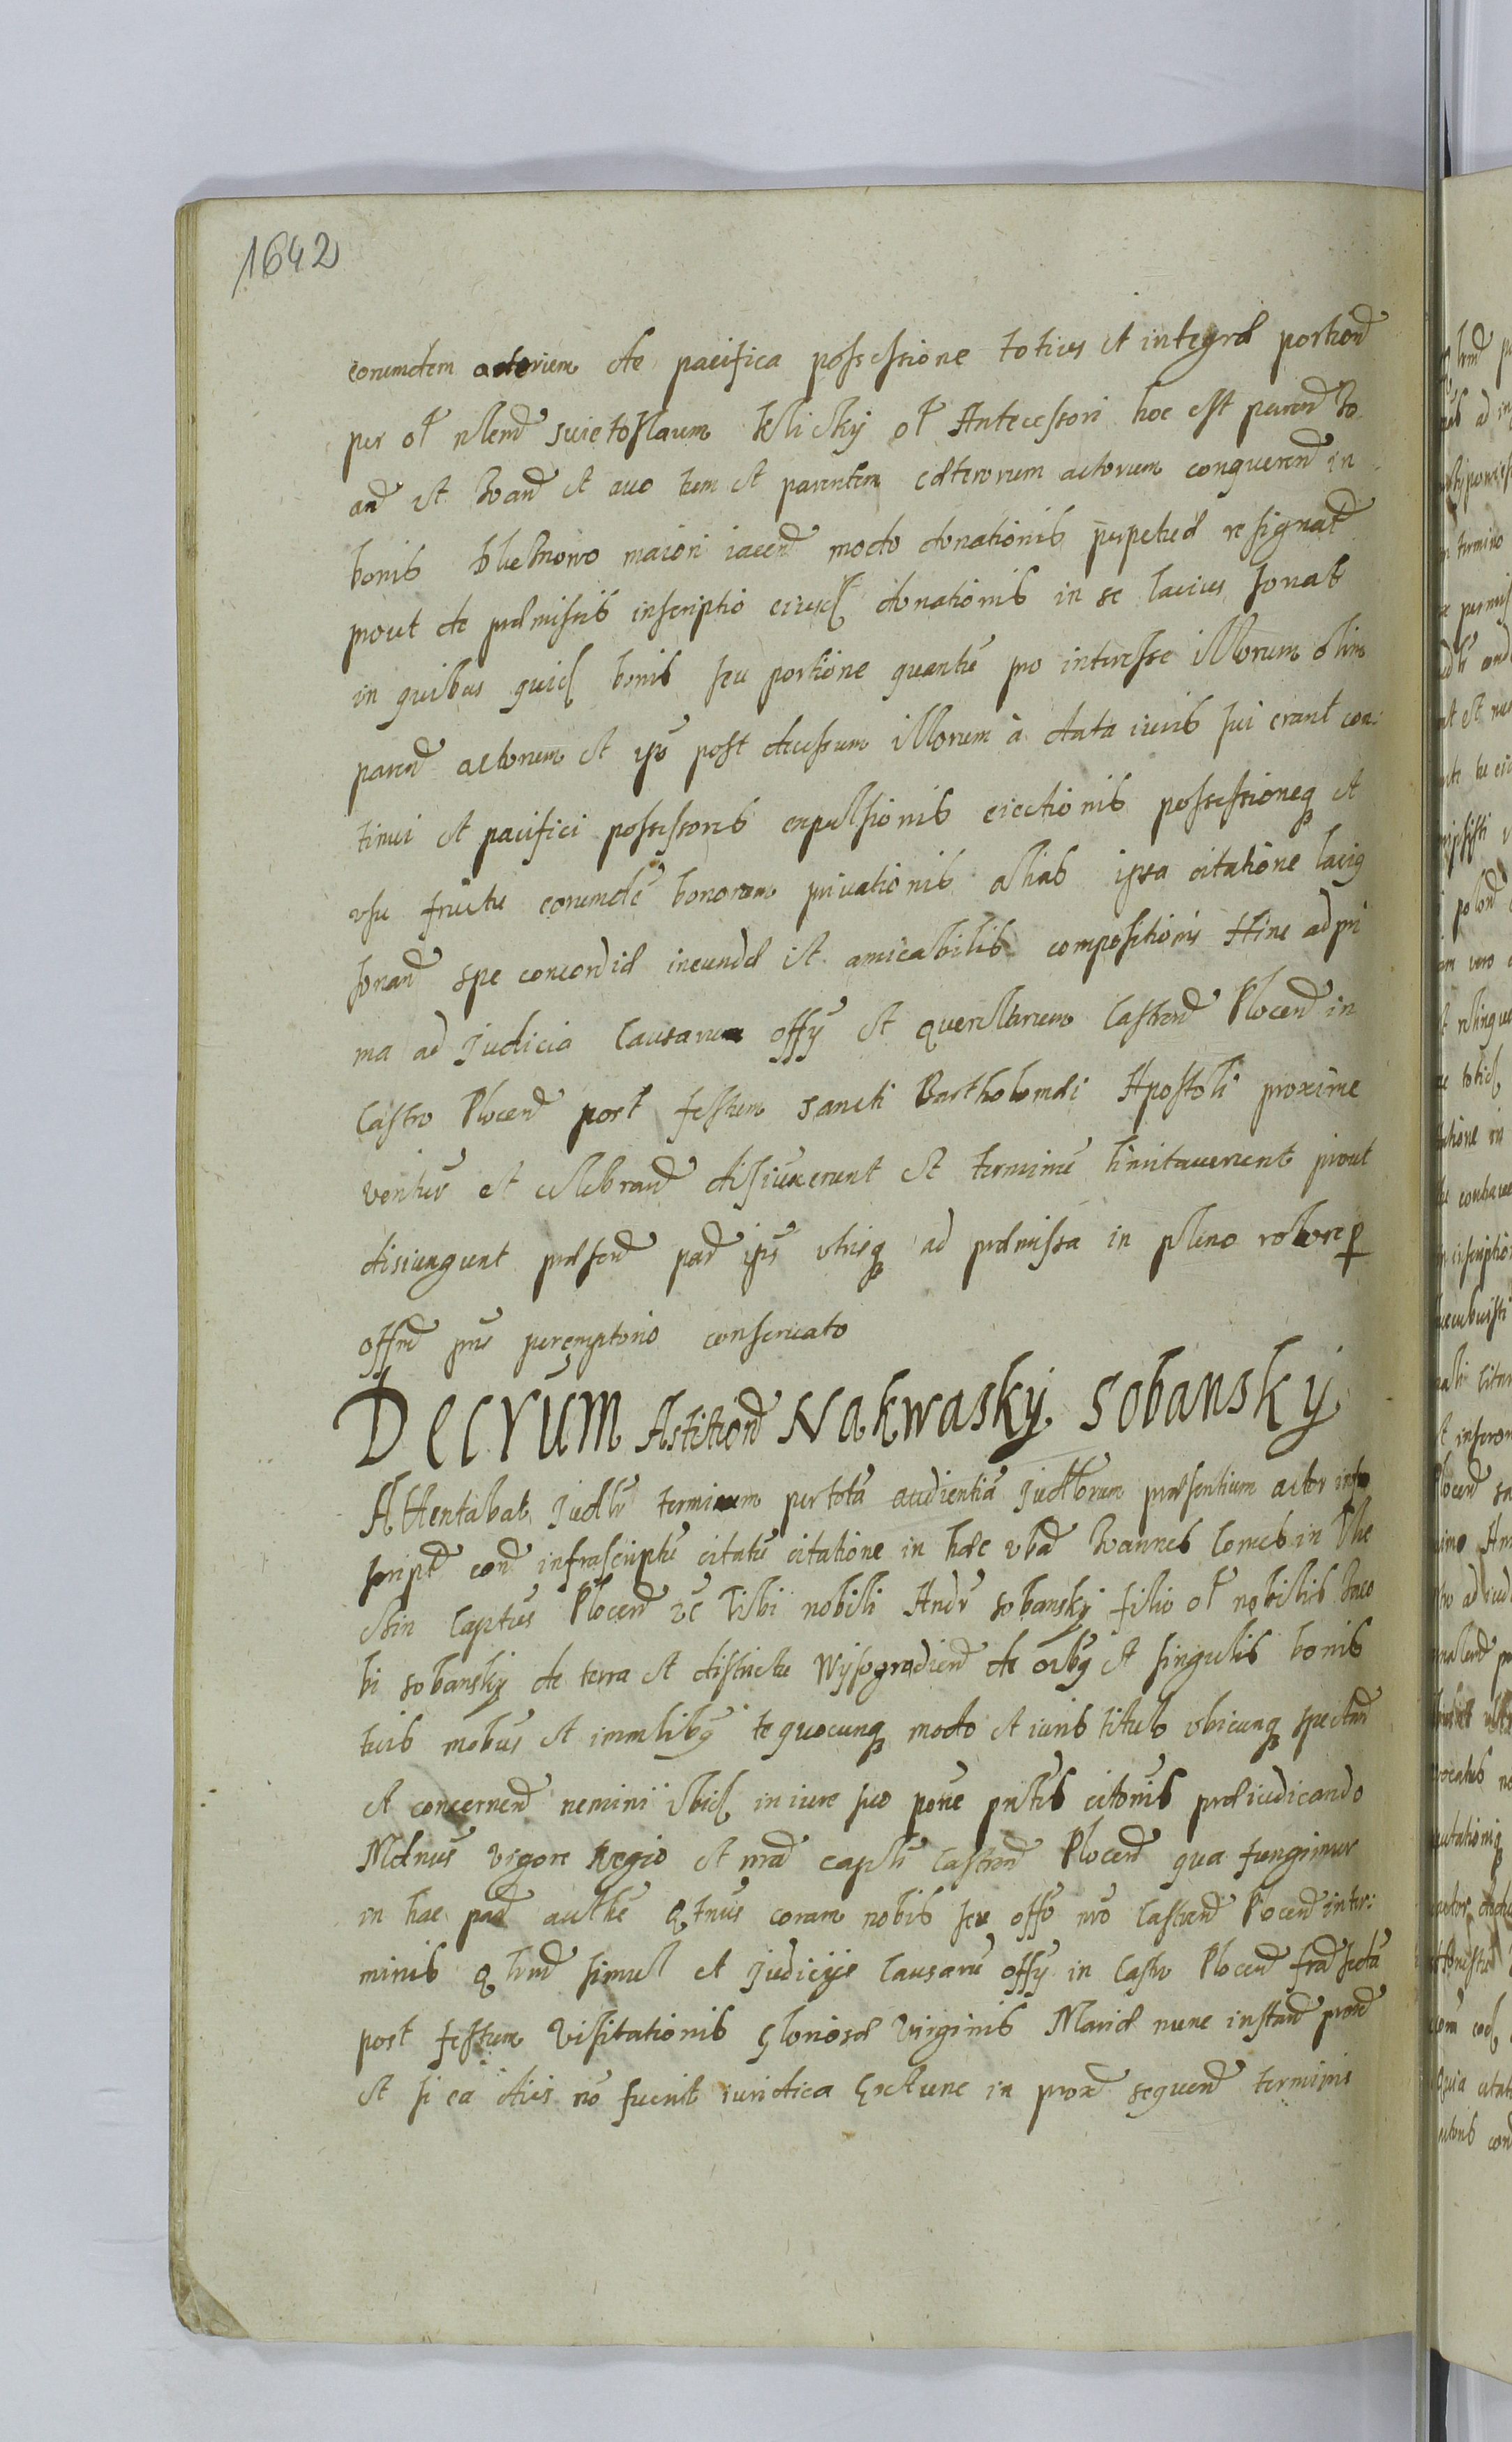 1642
eorumdem actorum de pacifica possessione totius et integræ portion
per ol Swietoslaum Klicky ol Antecessori hoc est paren Jo
an et Joan et auo tum et parentem cæterorum actorum conqueren in
bonis maiori iacen modo donationis perpetuæ resignat
prout de præmissis inscriptio eiusd donationis in se latius sonat
in quibus quid bonis seu portione quantū pro interesse illorum olim
paren actorum et ips post decessum illorum à data iuris sui erant con:
tinui et pacifici possessores expulsionis eiectionis possessioneq et
usu fructu eorumdē bonorum priuationis alias ipsa citatione latig
sonan spe concordiæ ineundæ et amicabilis compositionis Hinc ad pri
ma ad Judicia Causarum offy et querellarum Castren Plocen in
Castro Plocen post festum Sancti Bartholomæi Apostoli proxime
ventur et celebran disiūxerunt et terminū limitauerunt prout
disiungunt præsen par ips utrisq ad præmissa in pleno robore p
offm pns peremptorio conseruato
Decrum Astition Nakwasky Sobansky
Attentabat Judlr terminum per totā audientiā Judiorum præsentium actor infra
script con infrascriptū citatū citatione in hæc vba Joannes Comes in Ple
Captus Plocen &c Tibi nobili Andr Sobansky filio ol nobilis Jaco
bi Sobansky de terra et districtu Wysogrodien de oibg et singulis bonis
tuis mobus et immlibg te quocunq modo et iuris titulo ubicunq spectan
et concernen nemini ibid in iure suo pone pntis citonis præiudicando
Mdnus vigore Regio et nra caplī Castren Plocen qua fungimur
in hac par authē qtnus coram nobis seu offo nro Castren Plocen in ter:
minis simul et Judicijs Causarū offy in Castro Plocen
post festum Visitationis Gloriosæ Virginis Mariæ nunc instan
et si ea dies nō fuerit iuridica Extunc in prox sequen terminis